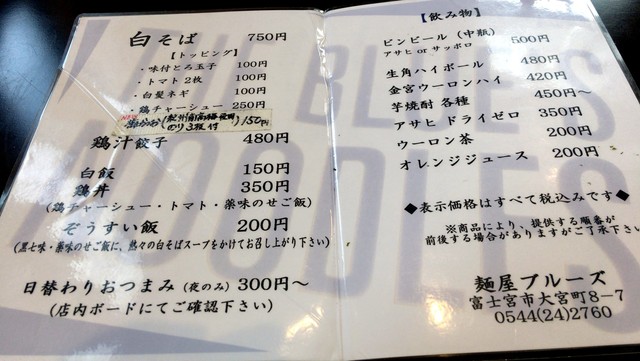 白そば 750円
【トッピング】
・味付とろ玉子 100円
・トマト2枚 100円
・白髪ネギ 100円
・鶏チャーシュー 250円
のり3枚付 150円
鶏汁餃子 480円
白飯 150円
鶏丼 350円
(鶏チャーシュー・トマト・薬味のせご飯)
ぞうすい飯 200円
(黒七味・薬味のせご飯に、熱々の白そばスープをかけてお召し上がり下さい)
日替わりおつまみ (夜のみ) 300円～
(店内ボードにてご確認下さい)
【飲み物】
ビンビール (中瓶) 500円
アサヒ or サッポロ
生角ハイボール 480円
金宮ウーロンハイ 420円
芋焼酎 各種 450円～
アサヒ ドライゼロ 350円
ウーロン茶 200円
オレンジジュース 200円
◆表示価格はすべて税込みです◆
※商品により、提供する順番が
前後する場合がありますがご了承下さい
麺屋ブルーズ
富士宮市大宮町8-7
0544(24)2760
BLUES
NOODLES